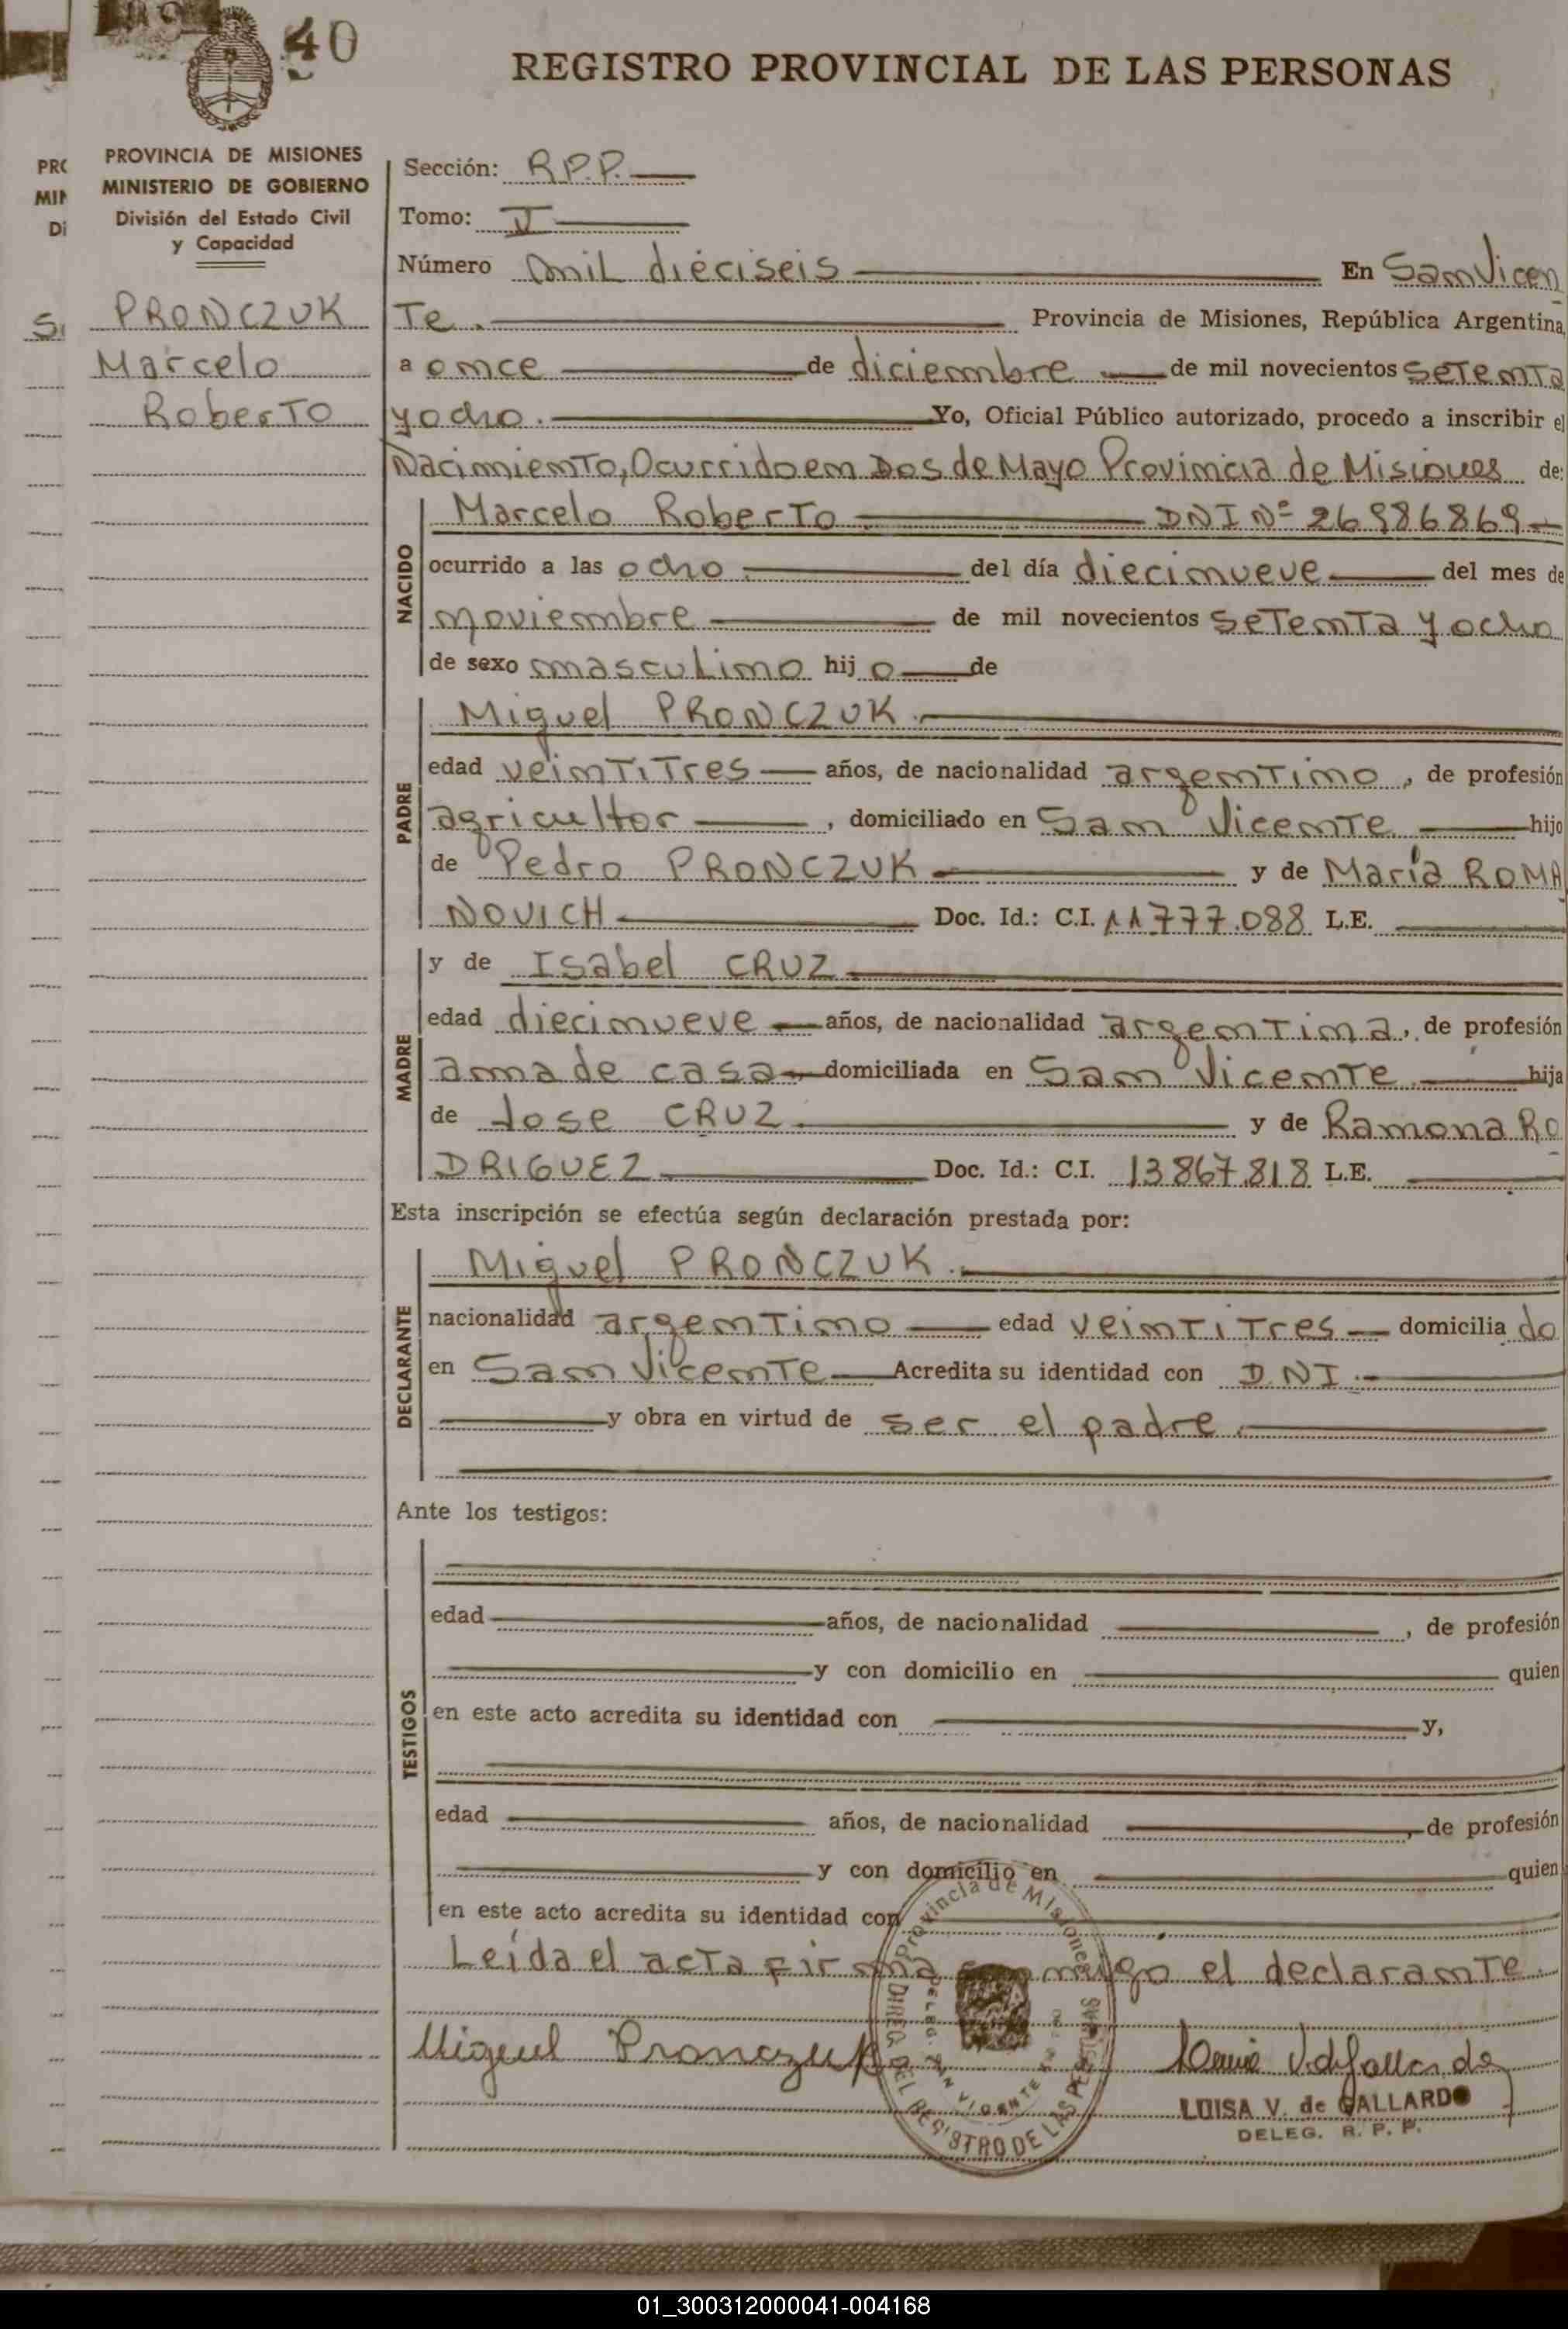 40
REGISTRO PROVINCIAL DE LAS PERSONAS
PROVINCIA DE MISIONES
MINISTERIO DE GOBIERNO
División del Estado Civil
y Capacidad
PRONCZUK
Marcelo
Roberto
Sección: R.P.P.
Tomo: V
Número mil dieciseis En San Vicen
te. Provincia de Misiones, República Argentina,
a once de diciembre de mil novecientos setenta
y ocho. Yo, Oficial Público autorizado, procedo a inscribir el
Nacimiento, Ocurrido en Dos de Mayo Provincia de Misiones de:
NACIDO
Marcelo Roberto DNI Nº 26986869
ocurrido a las ocho. del día diecinueve del mes de
noviembre de mil novecientos setenta y ocho
de sexo masculino hij o de
PADRE
Miguel PRONCZUK.
edad veintitres años, de nacionalidad argentino, de profesión
agricultor, domiciliado en San Vicente hijo
de Pedro PRONCZUK y de María ROMA
NOVICH Doc. Id.: C.I. 11777.088 L.E.
MADRE
y de Isabel CRUZ
edad diecinueve años, de nacionalidad argentina, de profesión
ama de casa domiciliada en San Vicente. hija
de Jose CRUZ. y de Ramona RO
DRIGUEZ. Doc. Id.: C.I. 13867.818 L.E.
Esta inscripción se efectúa según declaración prestada por:
DECLARANTE
Miguel PRONCZUK.
nacionalidad argentino edad veintitres domicilia do
en San Vicente Acredita su identidad con DNI.
y obra en virtud de ser el padre.
Ante los testigos:
TESTIGOS
edad años, de nacionalidad , de profesión
y con domicilio en quien
en este acto acredita su identidad con y,
edad años, de nacionalidad , de profesión
y con domicilio en quien
en este acto acredita su identidad con
Leída el acta firma conmigo el declarante.
Miguel Pronczuk
Provincia de Misiones
DIREC. DEL REGISTRO DE LAS PERSONAS
DELEG. SAN VICENTE
LUISA V. de GALLARDO
DELEG. R. P. P.
01_300312000041-004168